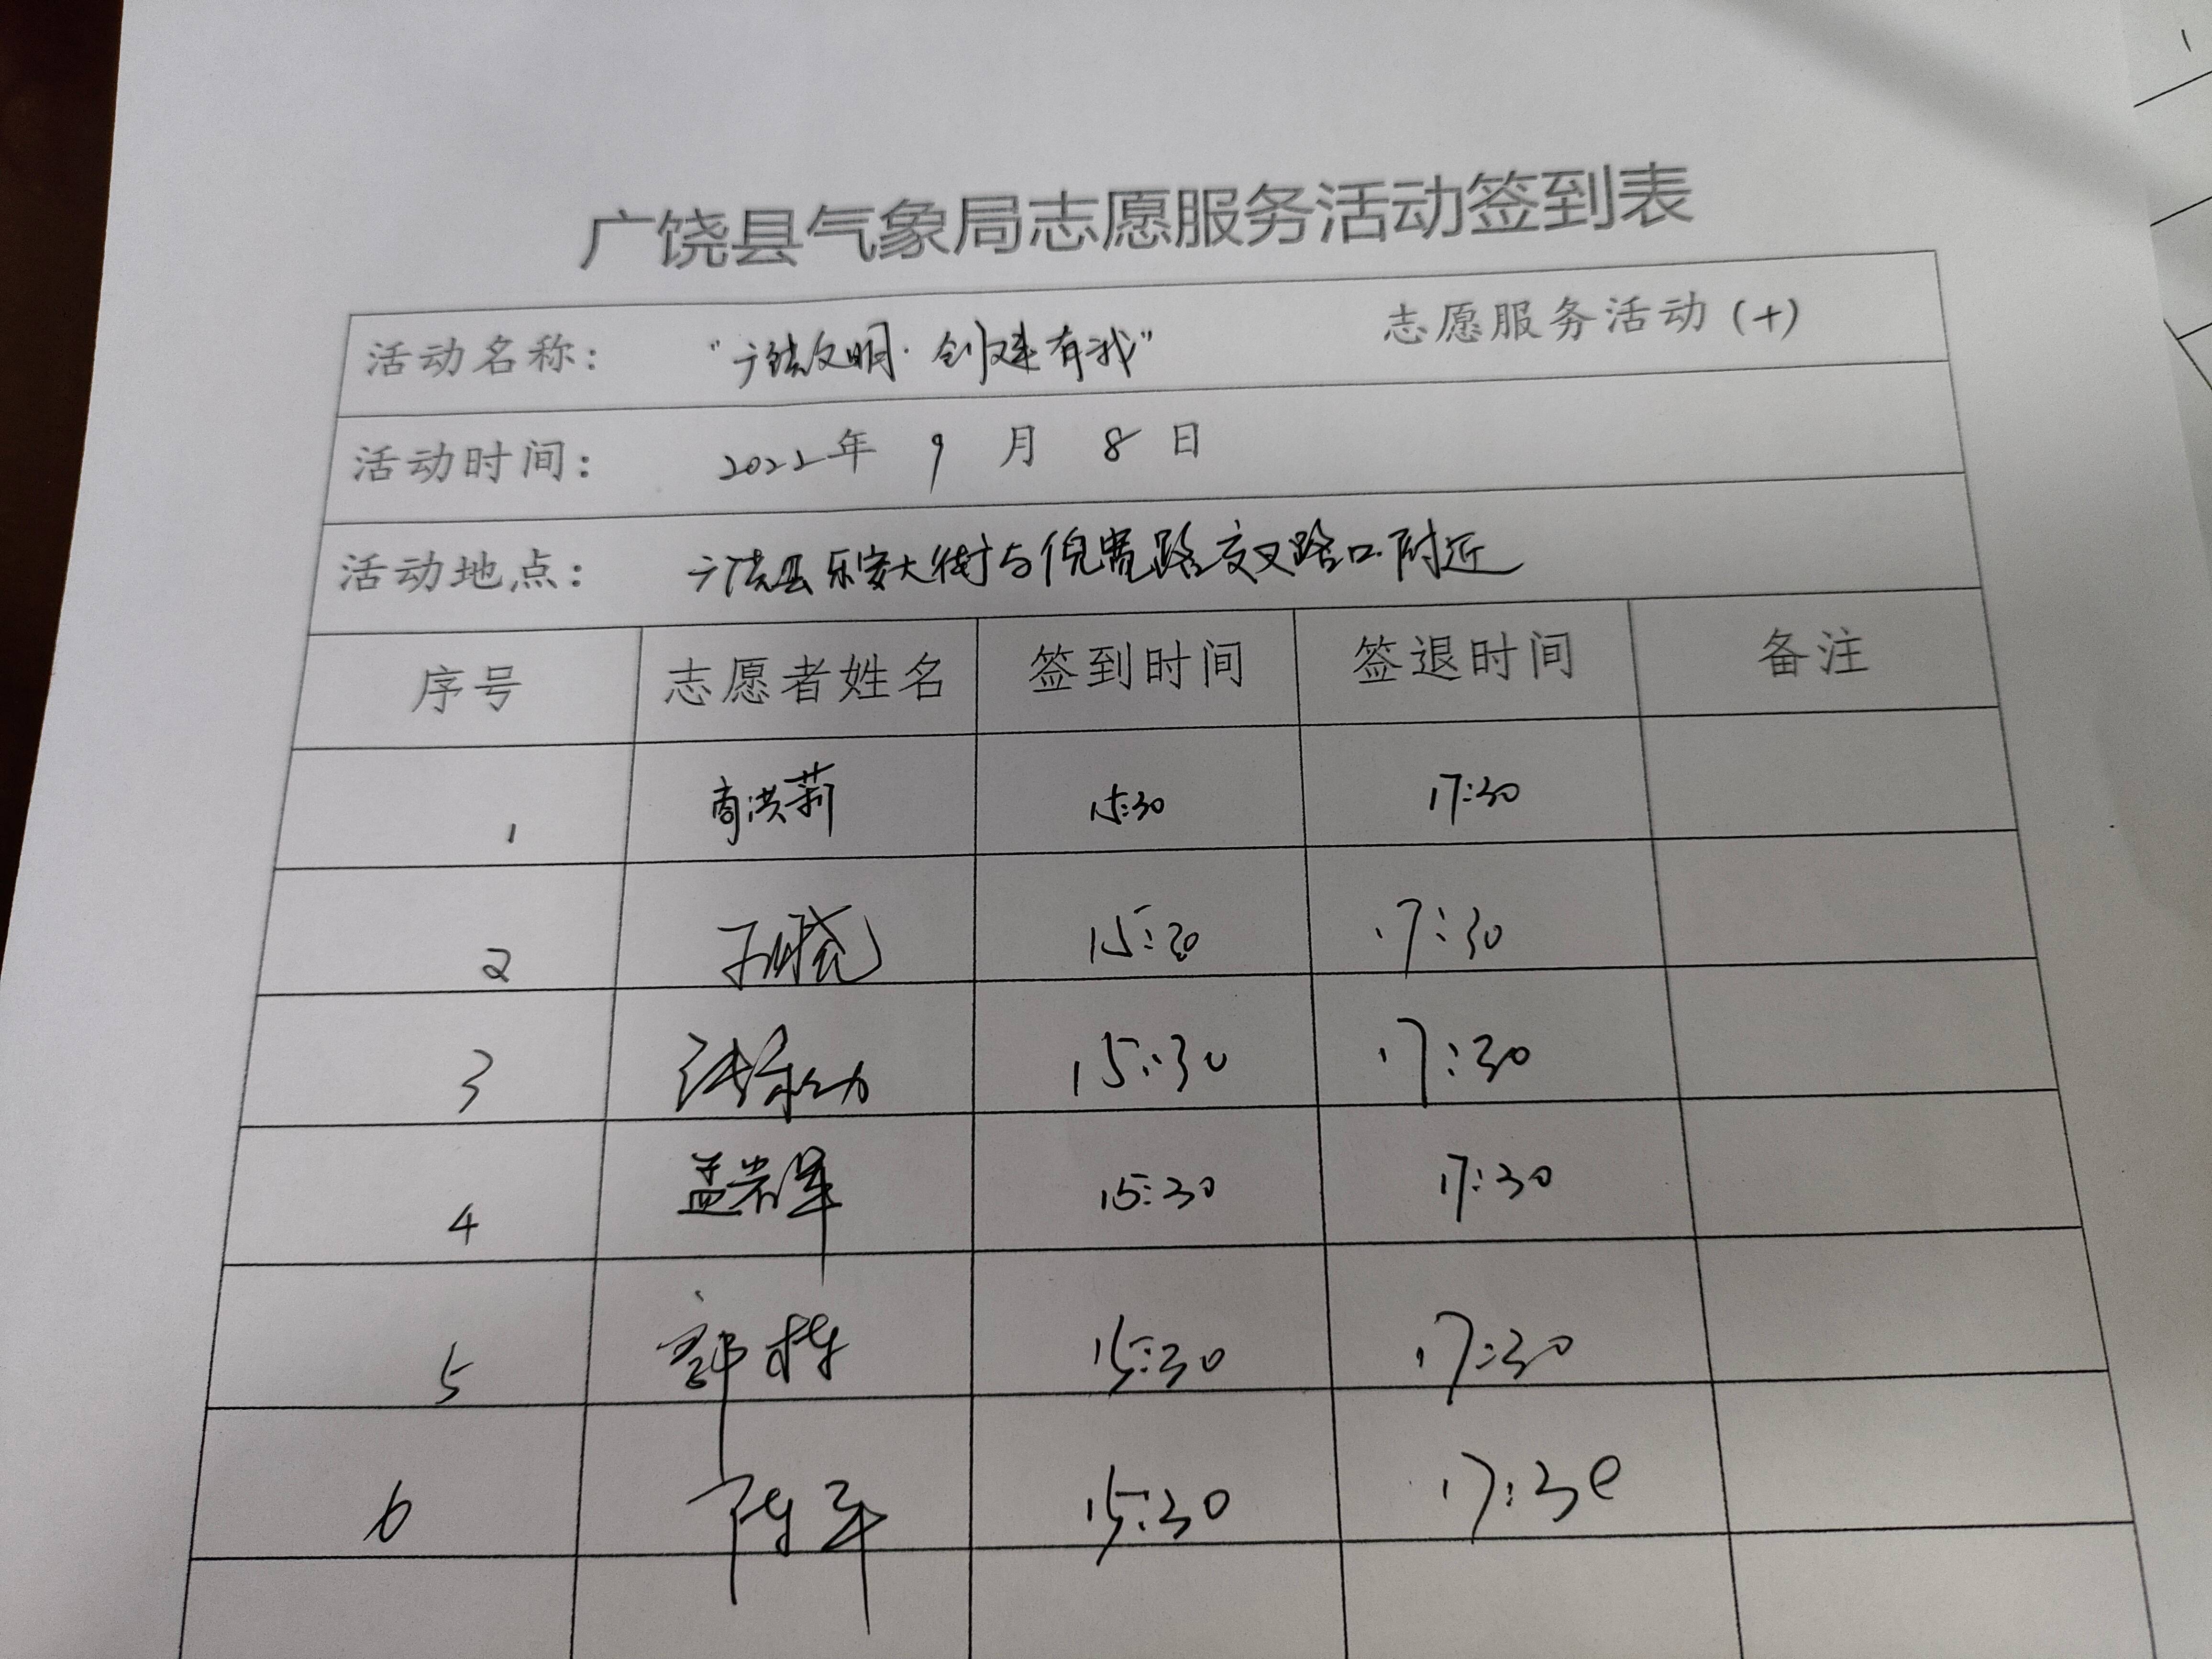 广饶县气象局志愿服务活动签到表
活动名称： “广饶文明·创建有我” 志愿服务活动（十）
活动时间： 2022年 9 月 8 日
活动地点： 广饶县乐安大街与倪宽路交叉路口附近
序号 志愿者姓名 签到时间 签退时间 备注
1 商洪莉 15:30 17:30
2 15:30 17:30
3 15:30 17:30
4 孟岩军 15:30 17:30
5 15:30 17:30
6 15:30 17:30